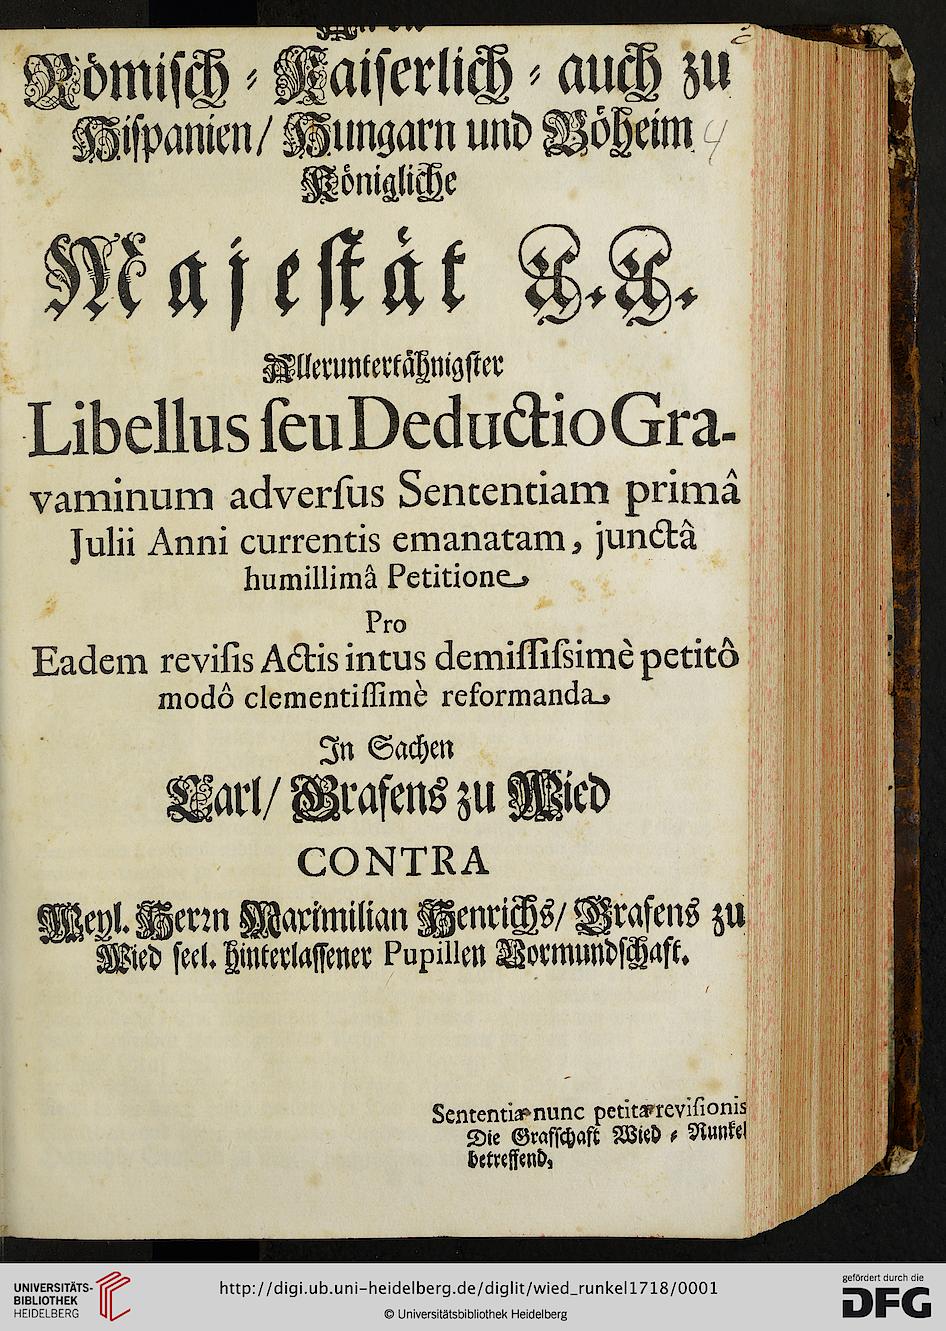 Römisch-Kaiserlich-auch zu
Hispanien/ Hungarn und Böheim
4
Königliche
Majestät A.A.
Alleruntertähnigster
Libellus seu Deductio Gra-
vaminum adversus Sententiam primâ
Julii Anni currentis emanatam, junctâ
humillimâ Petitione,
Pro
Eadem revisis Actis intus demississimè petitô
modô clementissimè reformanda,
In Sachen
Carl/ Grafens zu Wied
CONTRA
Weyl. Herrn Maximilian Henrichs/ Grafens zu
Wied seel. hinterlassener Pupillen Vormundschaft.
Sententiæ nunc petitæ revisionis
Die Grafschaft Wied-Runkel
betreffend,
UNIVERSITÄTS-
BIBLIOTHEK
HEIDELBERG
http://digi.ub.uni-heidelberg.de/diglit/wied_runkel1718/0001
© Universitätsbibliothek Heidelberg
gefördert durch die
DFG